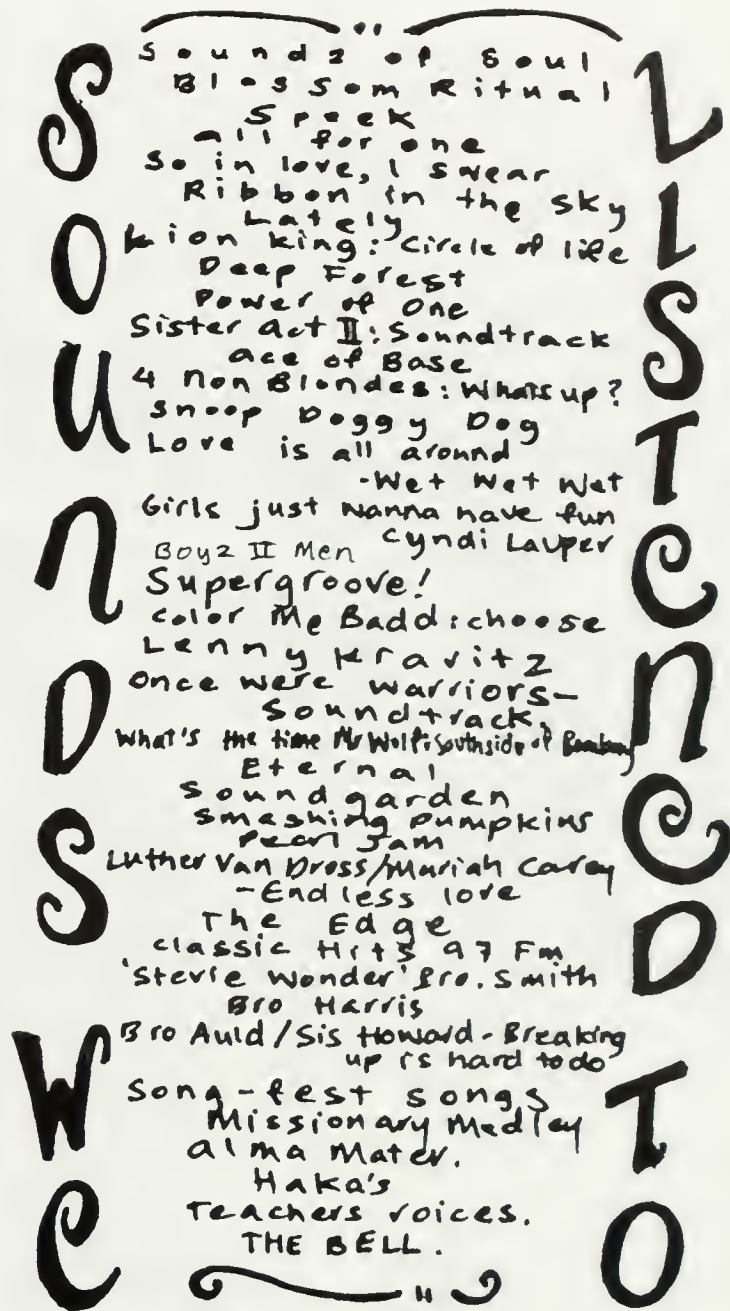 SOUNDS WE
LISTENED TO
Soundz of Soul
Blossom Ritual
Speek
all for one
So in love, I swear
Ribbon in the sky
Lately
Lion King: Circle of life
Deep Forest
Power of One
Sister Act II: Soundtrack
ace of Base
4 Non Blondes: Whats up?
Snoop Doggy Dog
Love is all around
-Wet Wet Wet
Girls just wanna have fun
Cyndi Lauper
Boyz II Men
Supergroove!
Color Me Badd: choose
Lenny Kravitz
Once were warriors-
Soundtrack.
What's the time Mr Wolf: Southside of
Eternal
Soundgarden
Smashing Pumpkins
Pearl Jam
Luther Van Dross/Mariah Carey
-Endless love
The Edge
Classic Hits 97 Fm
'Stevie Wonder' Bro. Smith
Bro Harris
Bro Auld/Sis Howard - Breaking
up is hard to do
Song-fest songs
Missionary Medley
alma Mater.
Haka's
Teachers voices.
THE BELL.